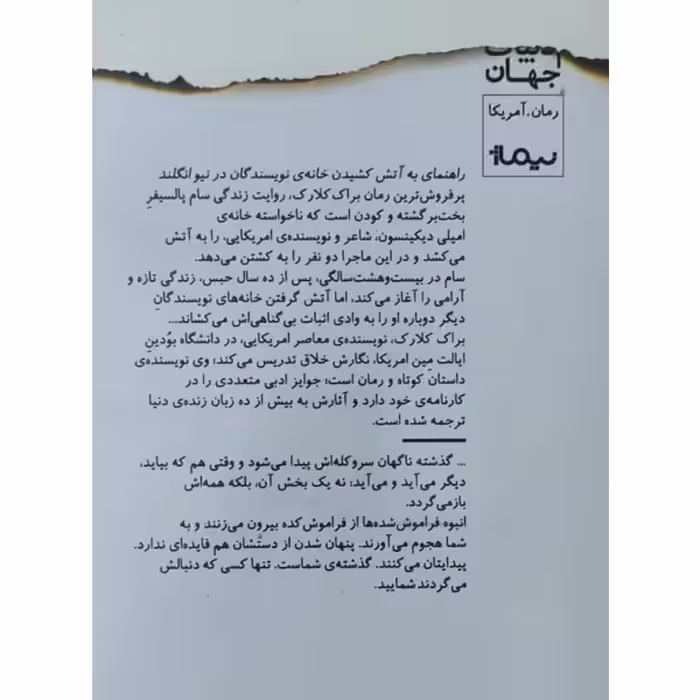 ادبیات
جهان
رمان، آمریکا
نیماژ
راهنمای به آتش کشیدن خانه‌ی نویسندگان در نیوانگلند
پرفروش‌ترین رمان براک کلارک، روایت زندگی سام پالسیفرِ
بخت‌برگشته و کودن است که ناخواسته خانه‌ی
امیلی دیکینسون، شاعر و نویسنده‌ی امریکایی، را به آتش
می‌کشد و در این ماجرا دو نفر را به کشتن می‌دهد.
سام در بیست‌وهشت‌سالگی، پس از ده سال حبس، زندگی تازه و
آرامی را آغاز می‌کند، اما آتش گرفتن خانه‌های نویسندگانِ
دیگر دوباره او را به وادی اثبات بی‌گناهی‌اش می‌کشاند...
براک کلارک، نویسنده‌ی معاصر امریکایی، در دانشگاه بودینِ
ایالت مین امریکا، نگارش خلاق تدریس می‌کند؛ وی نویسنده‌ی
داستان کوتاه و رمان است؛ جوایز ادبی متعددی را در
کارنامه‌ی خود دارد و آثارش به بیش از ده زبان زنده‌ی دنیا
ترجمه شده است.
... گذشته ناگهان سروکله‌اش پیدا می‌شود و وقتی هم که بیاید،
دیگر می‌آید و می‌آید؛ نه یک بخش آن، بلکه همه‌اش
بازمی‌گردد.
انبوه فراموش‌شده‌ها از فراموش‌کده بیرون می‌زنند و به
شما هجوم می‌آورند. پنهان شدن از دستشان هم فایده‌ای ندارد.
پیدایتان می‌کنند. گذشته‌ی شماست. تنها کسی که دنبالش
می‌گردند شمایید.